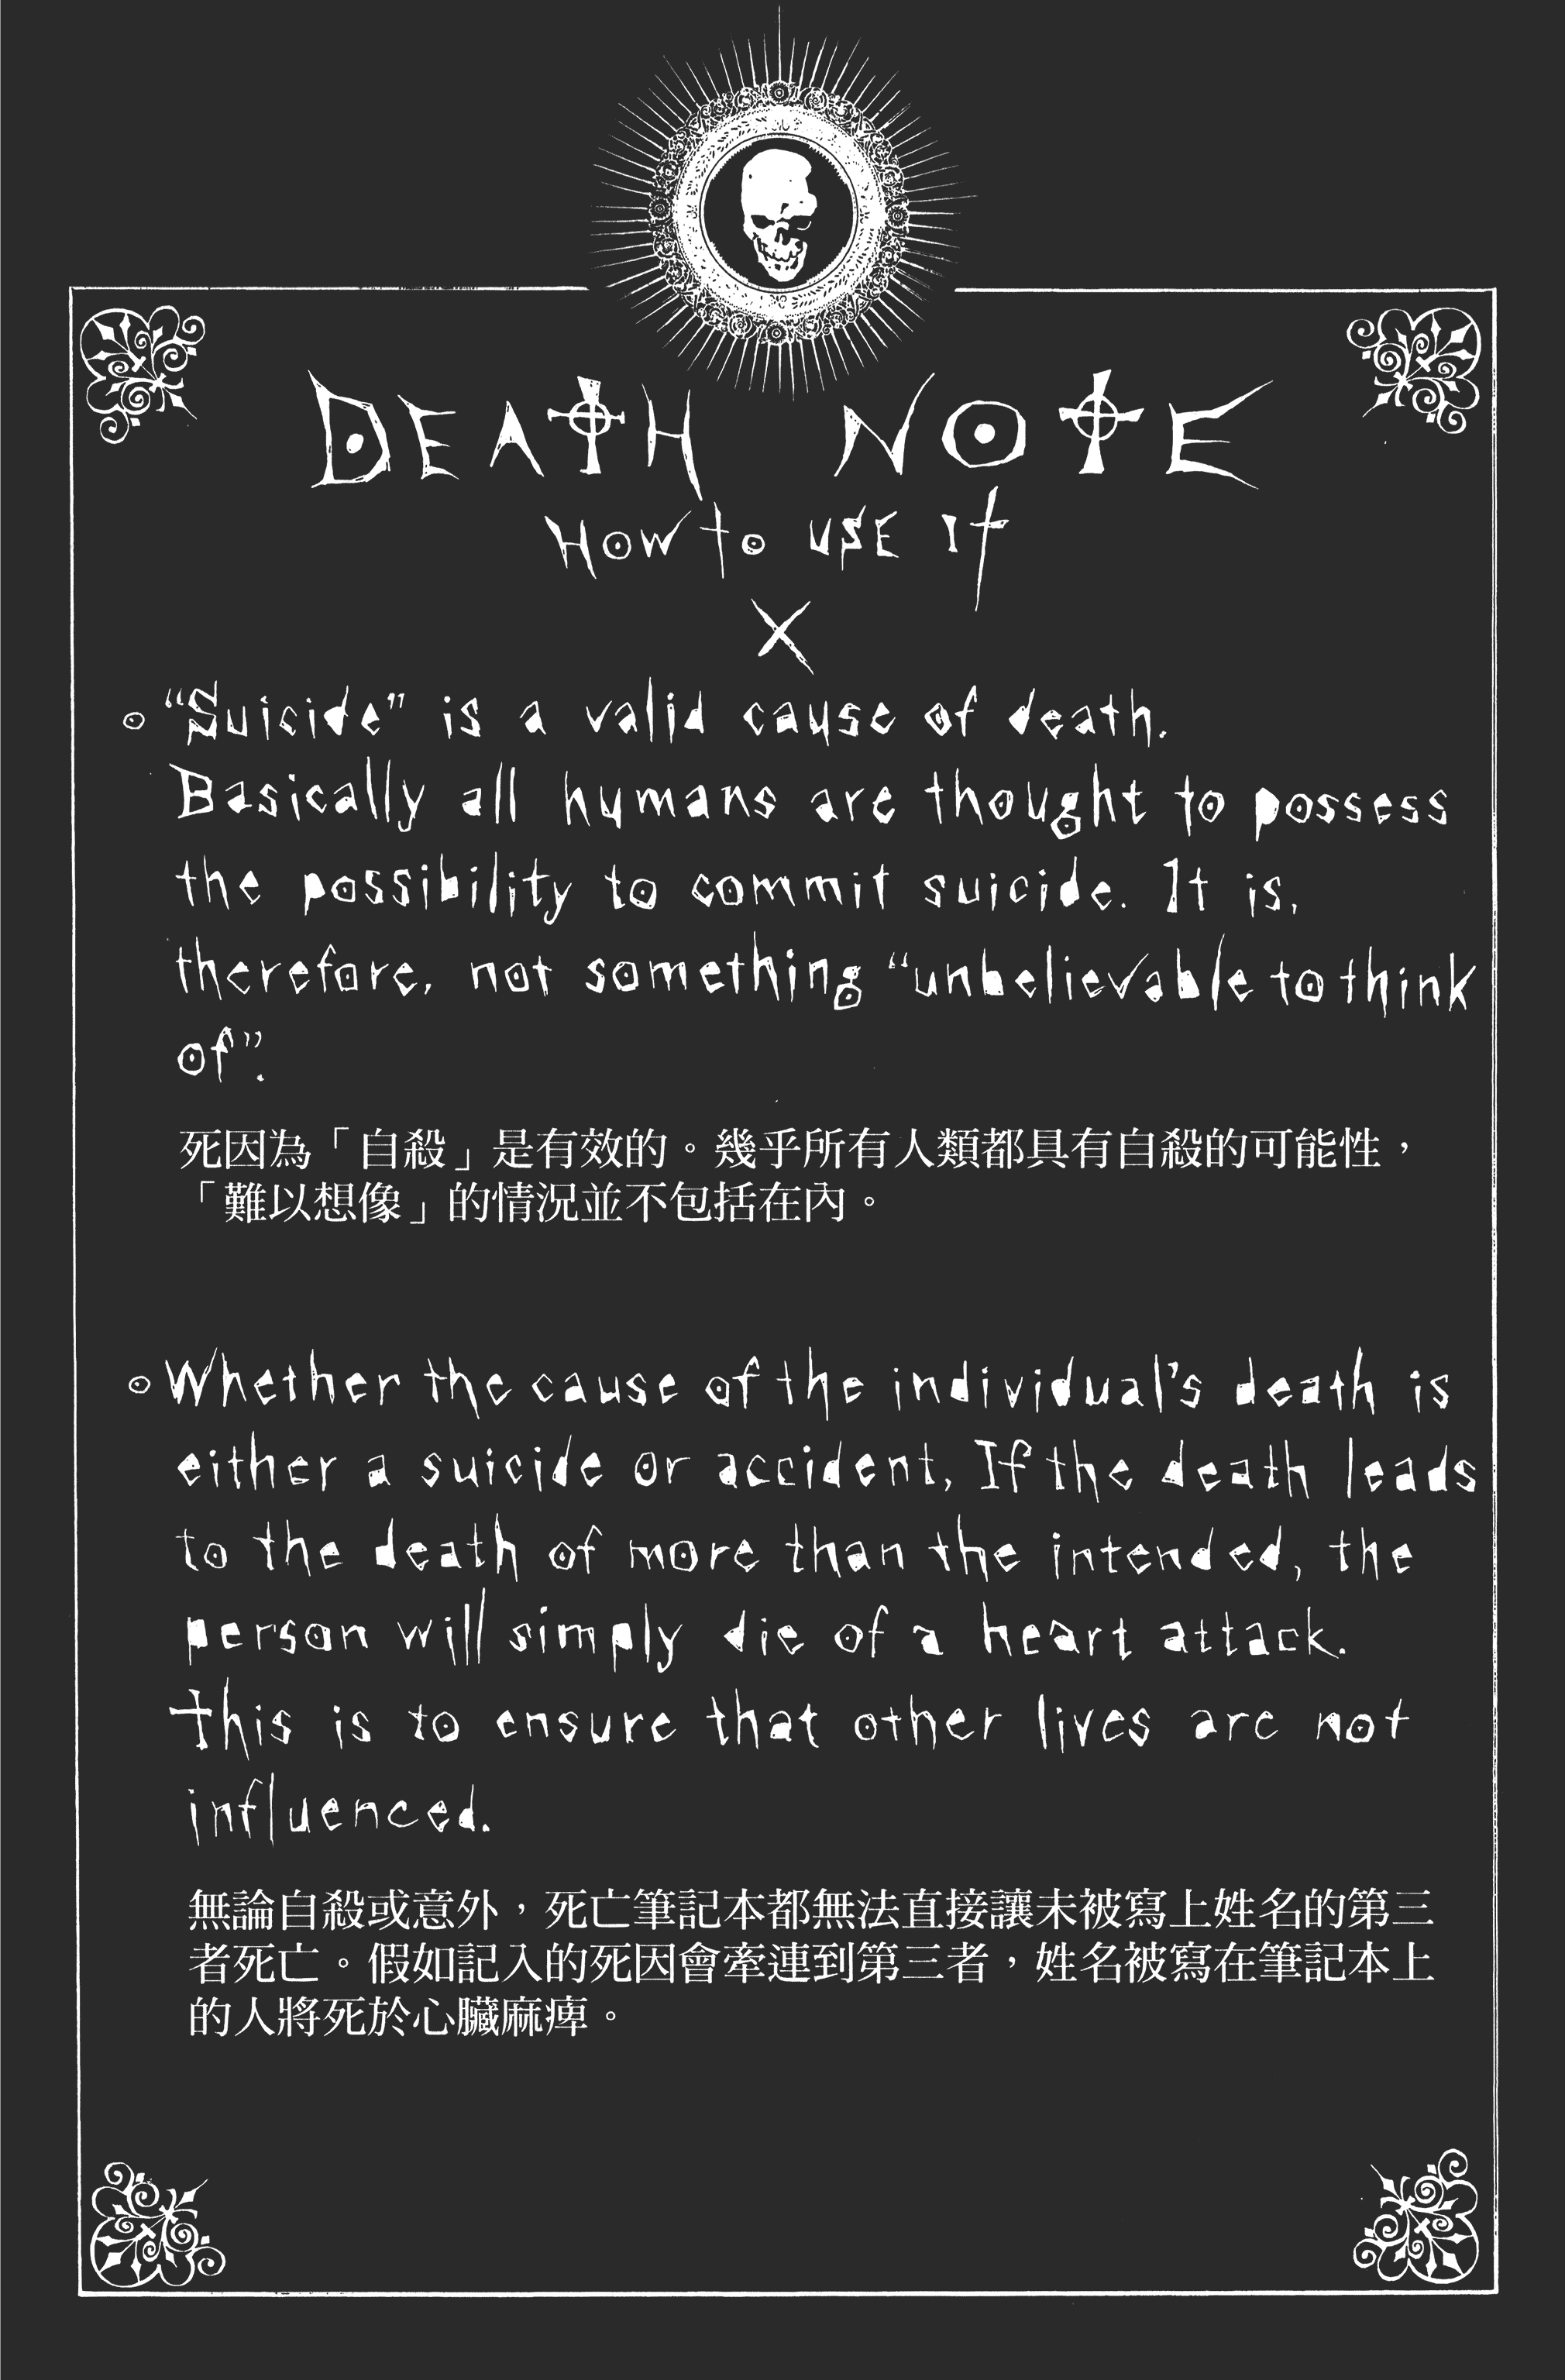 DEATH NOTE
HOW to USE It
X
○ “Suicide” is a valid cause of death.
Basically all humans are thought to possess
the possibility to commit suicide. It is,
therefore, not something “unbelievable to think
of”.
死因為「自殺」是有效的。幾乎所有人類都具有自殺的可能性，
「難以想像」的情況並不包括在內。
○ Whether the cause of the individual's death is
either a suicide or accident, If the death leads
to the death of more than the intended, the
person will simply die of a heart attack.
This is to ensure that other lives are not
influenced.
無論自殺或意外，死亡筆記本都無法直接讓未被寫上姓名的第三
者死亡。假如記入的死因會牽連到第三者，姓名被寫在筆記本上
的人將死於心臟麻痺。